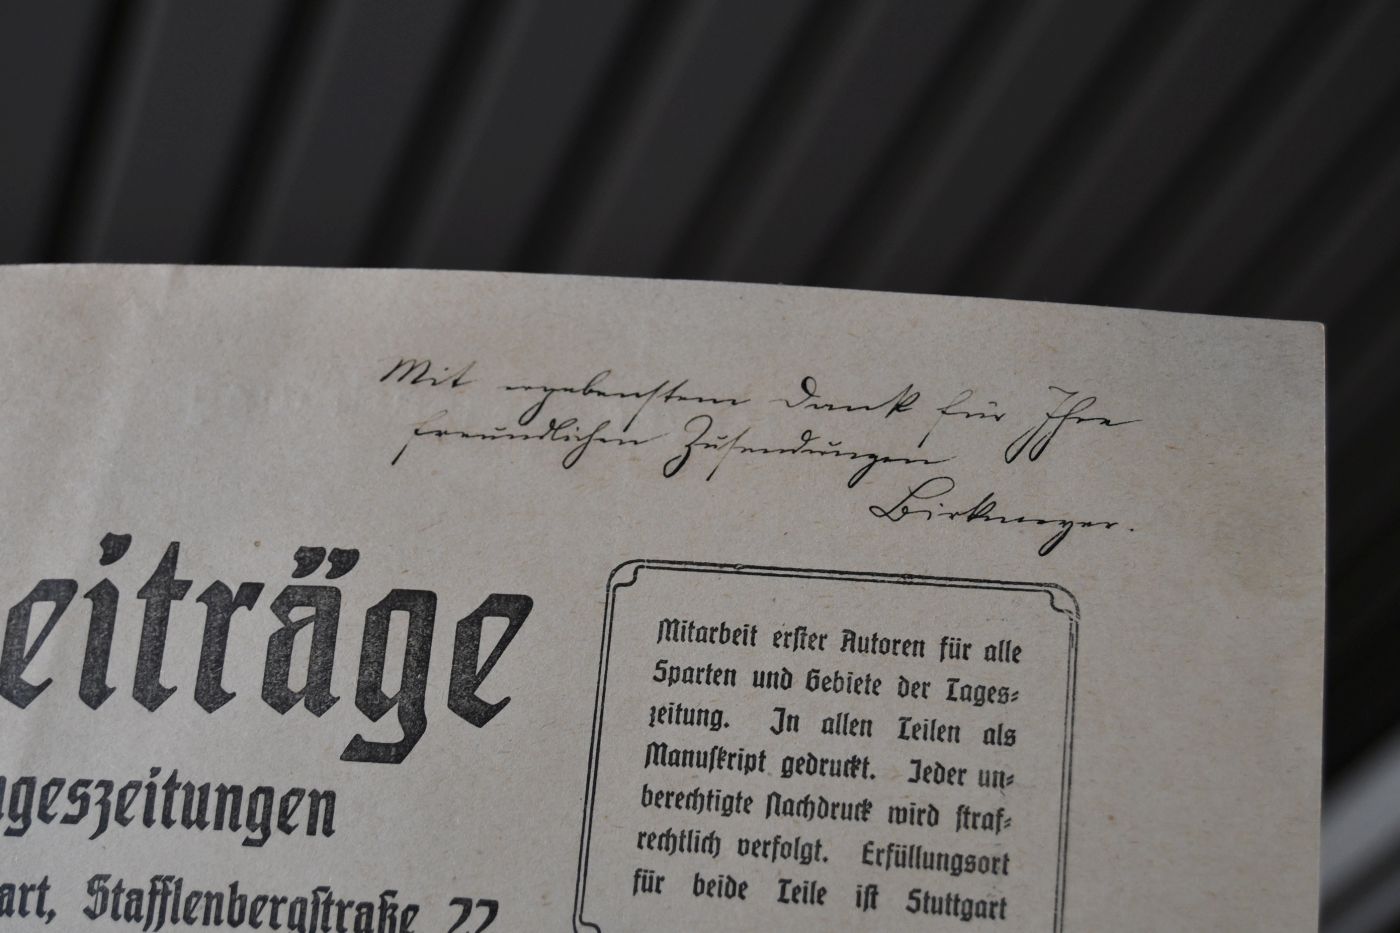 Mit ergebenstem Dank für Ihre
freundlichen Zusendungen
Birkmeyer.
eiträge
geszeitungen
art, Stafflenbergstraße 22
Mitarbeit erster Autoren für alle
Sparten und Gebiete der Tages-
zeitung. In allen Teilen als
Manuskript gedruckt. Jeder un-
berechtigte Nachdruck wird straf-
rechtlich verfolgt. Erfüllungsort
für beide Teile ist Stuttgart